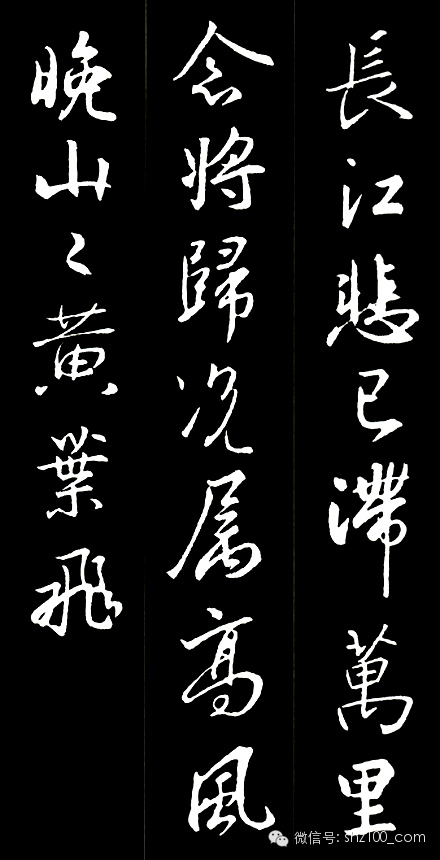 長江悲已滯萬里
念將歸况属高風
晚山〻黄葉飛
微信号: shz100_com